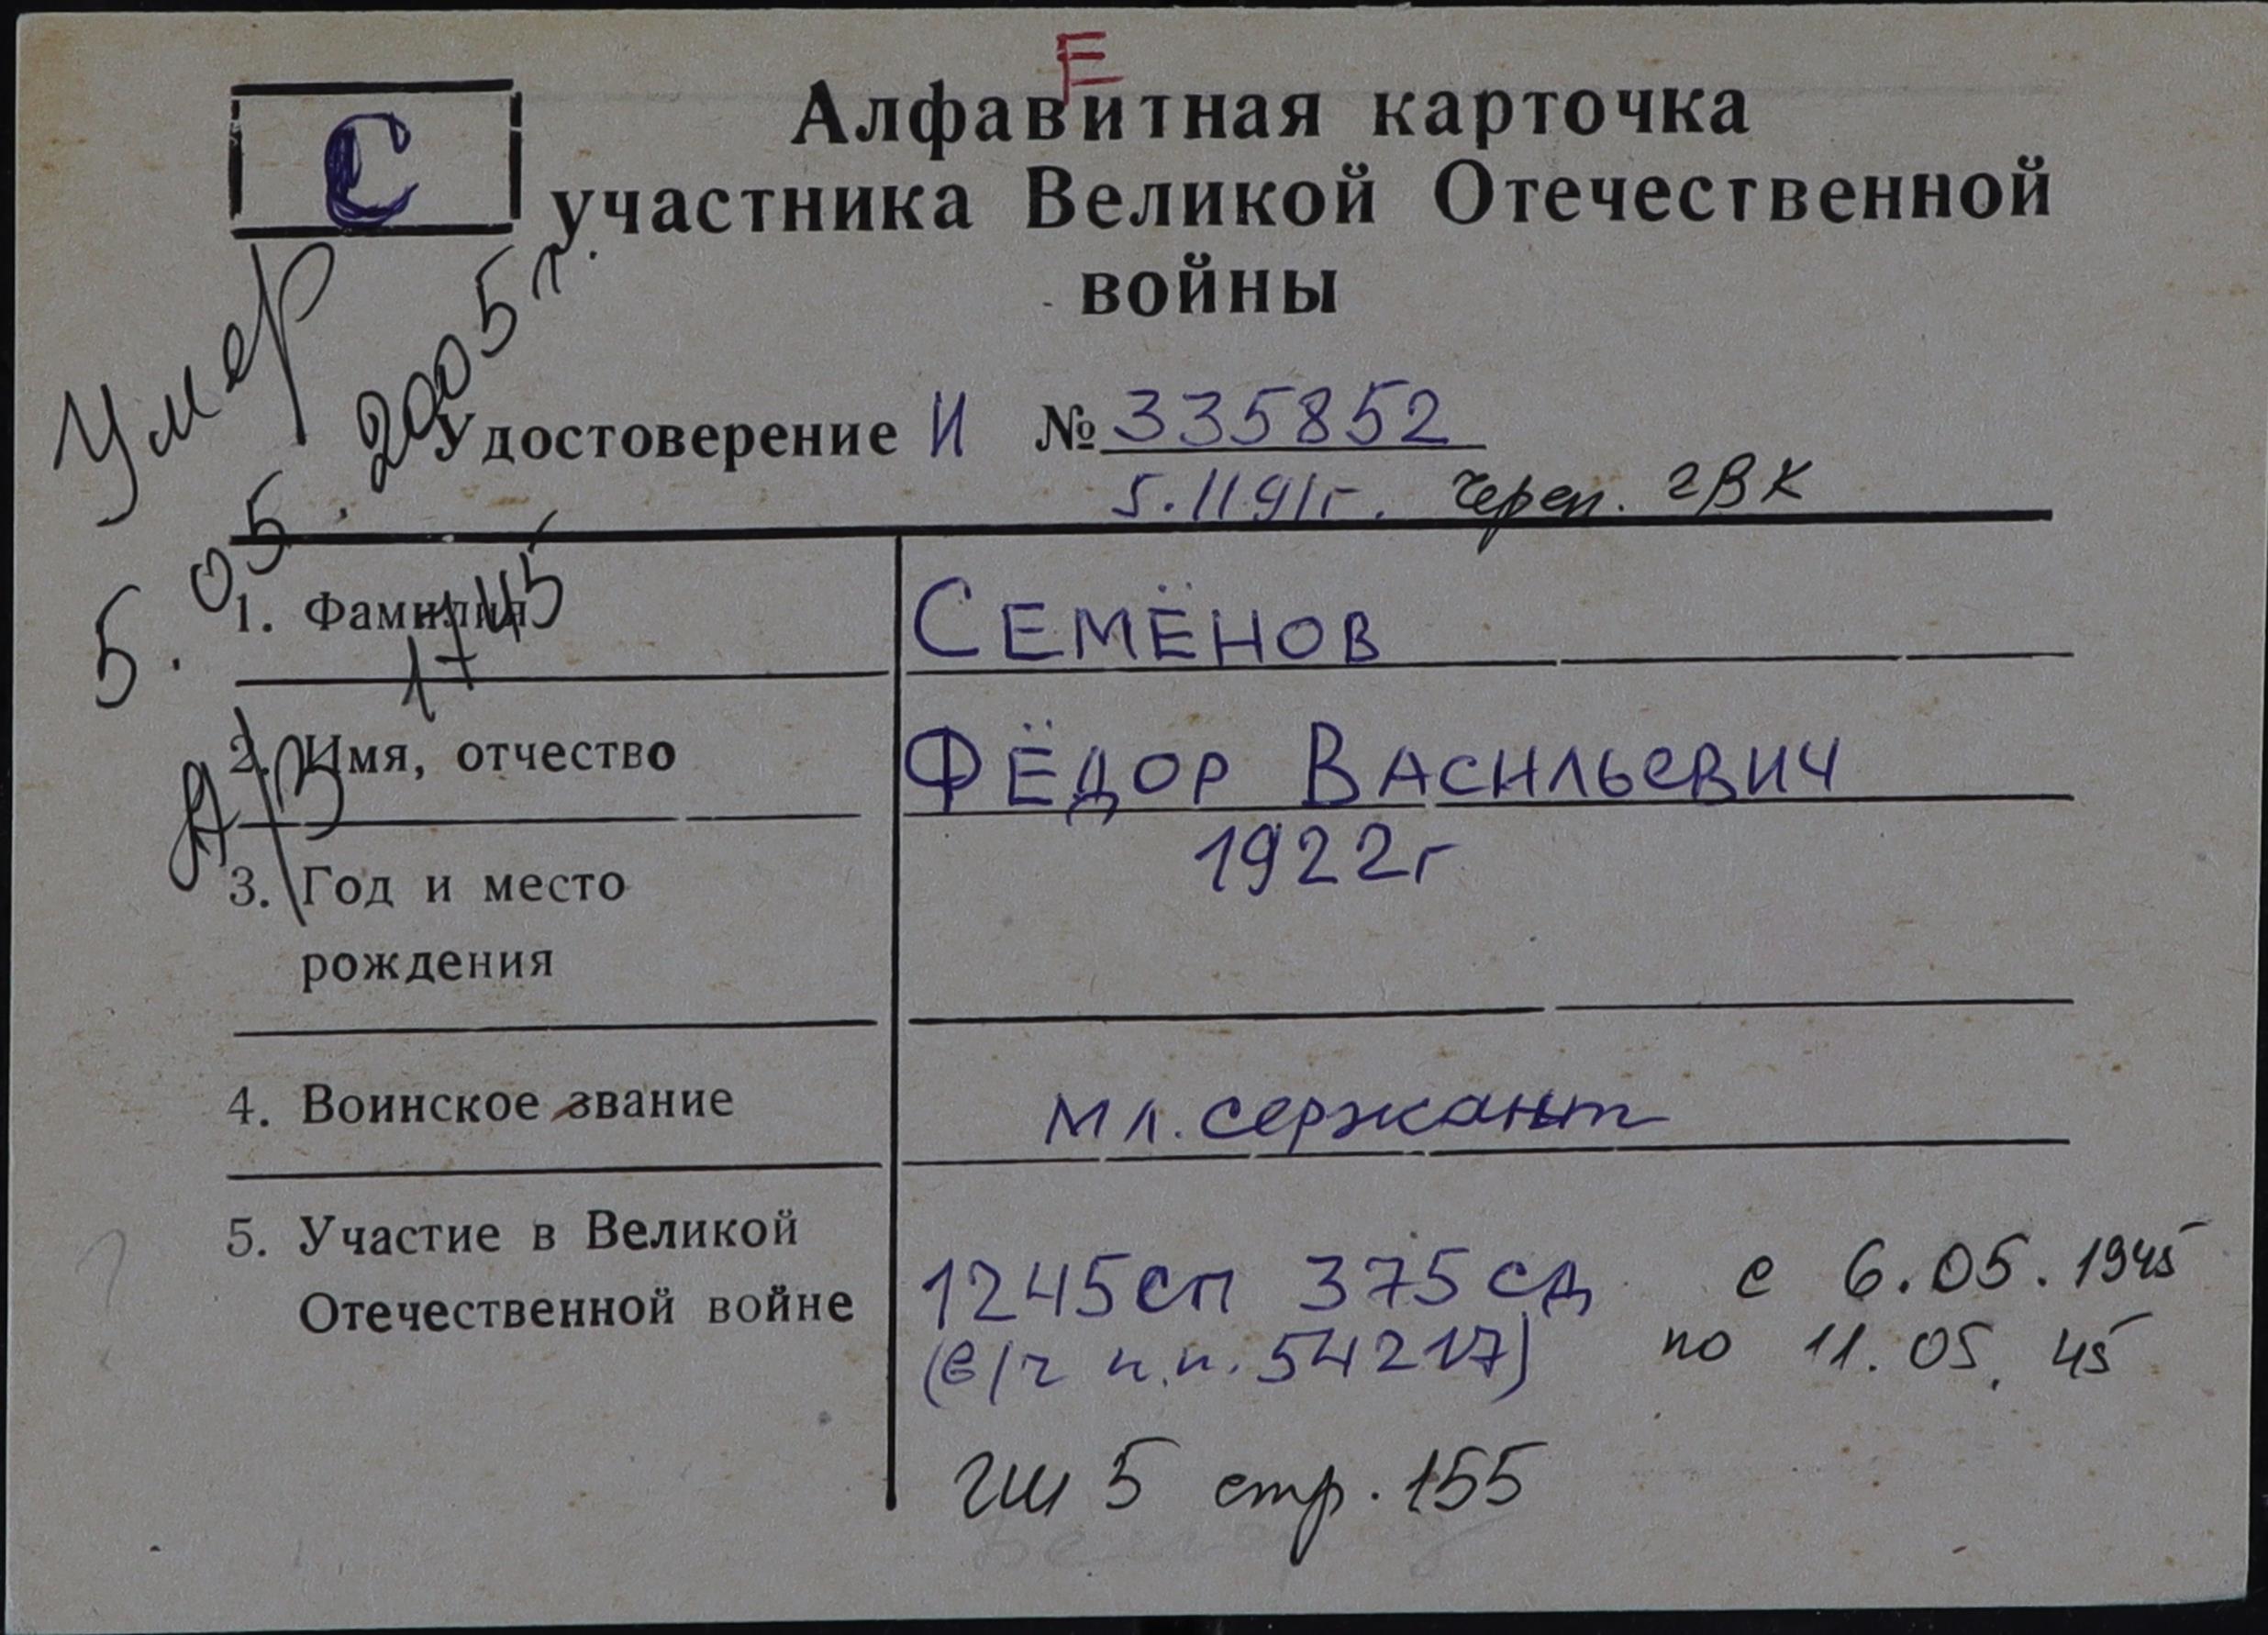 Е
С
Алфавитная карточка
участника Великой Отечественной
войны
Умер
5.05.2005 г.
Удостоверение И № 335852
5.11.91г. Череп. ГВК
а/з 1745
1. Фамилия
СЕМЁНОВ
2. Имя, отчество
ФЁДОР ВАСИЛЬЕВИЧ
3. Год и место
рождения
1922г
4. Воинское звание
мл. сержант
5. Участие в Великой
Отечественной войне
1245сп 375 сд с 6.05.1945
(в/ч п.п. 54217) по 11.05.45
ГШ 5 стр. 155